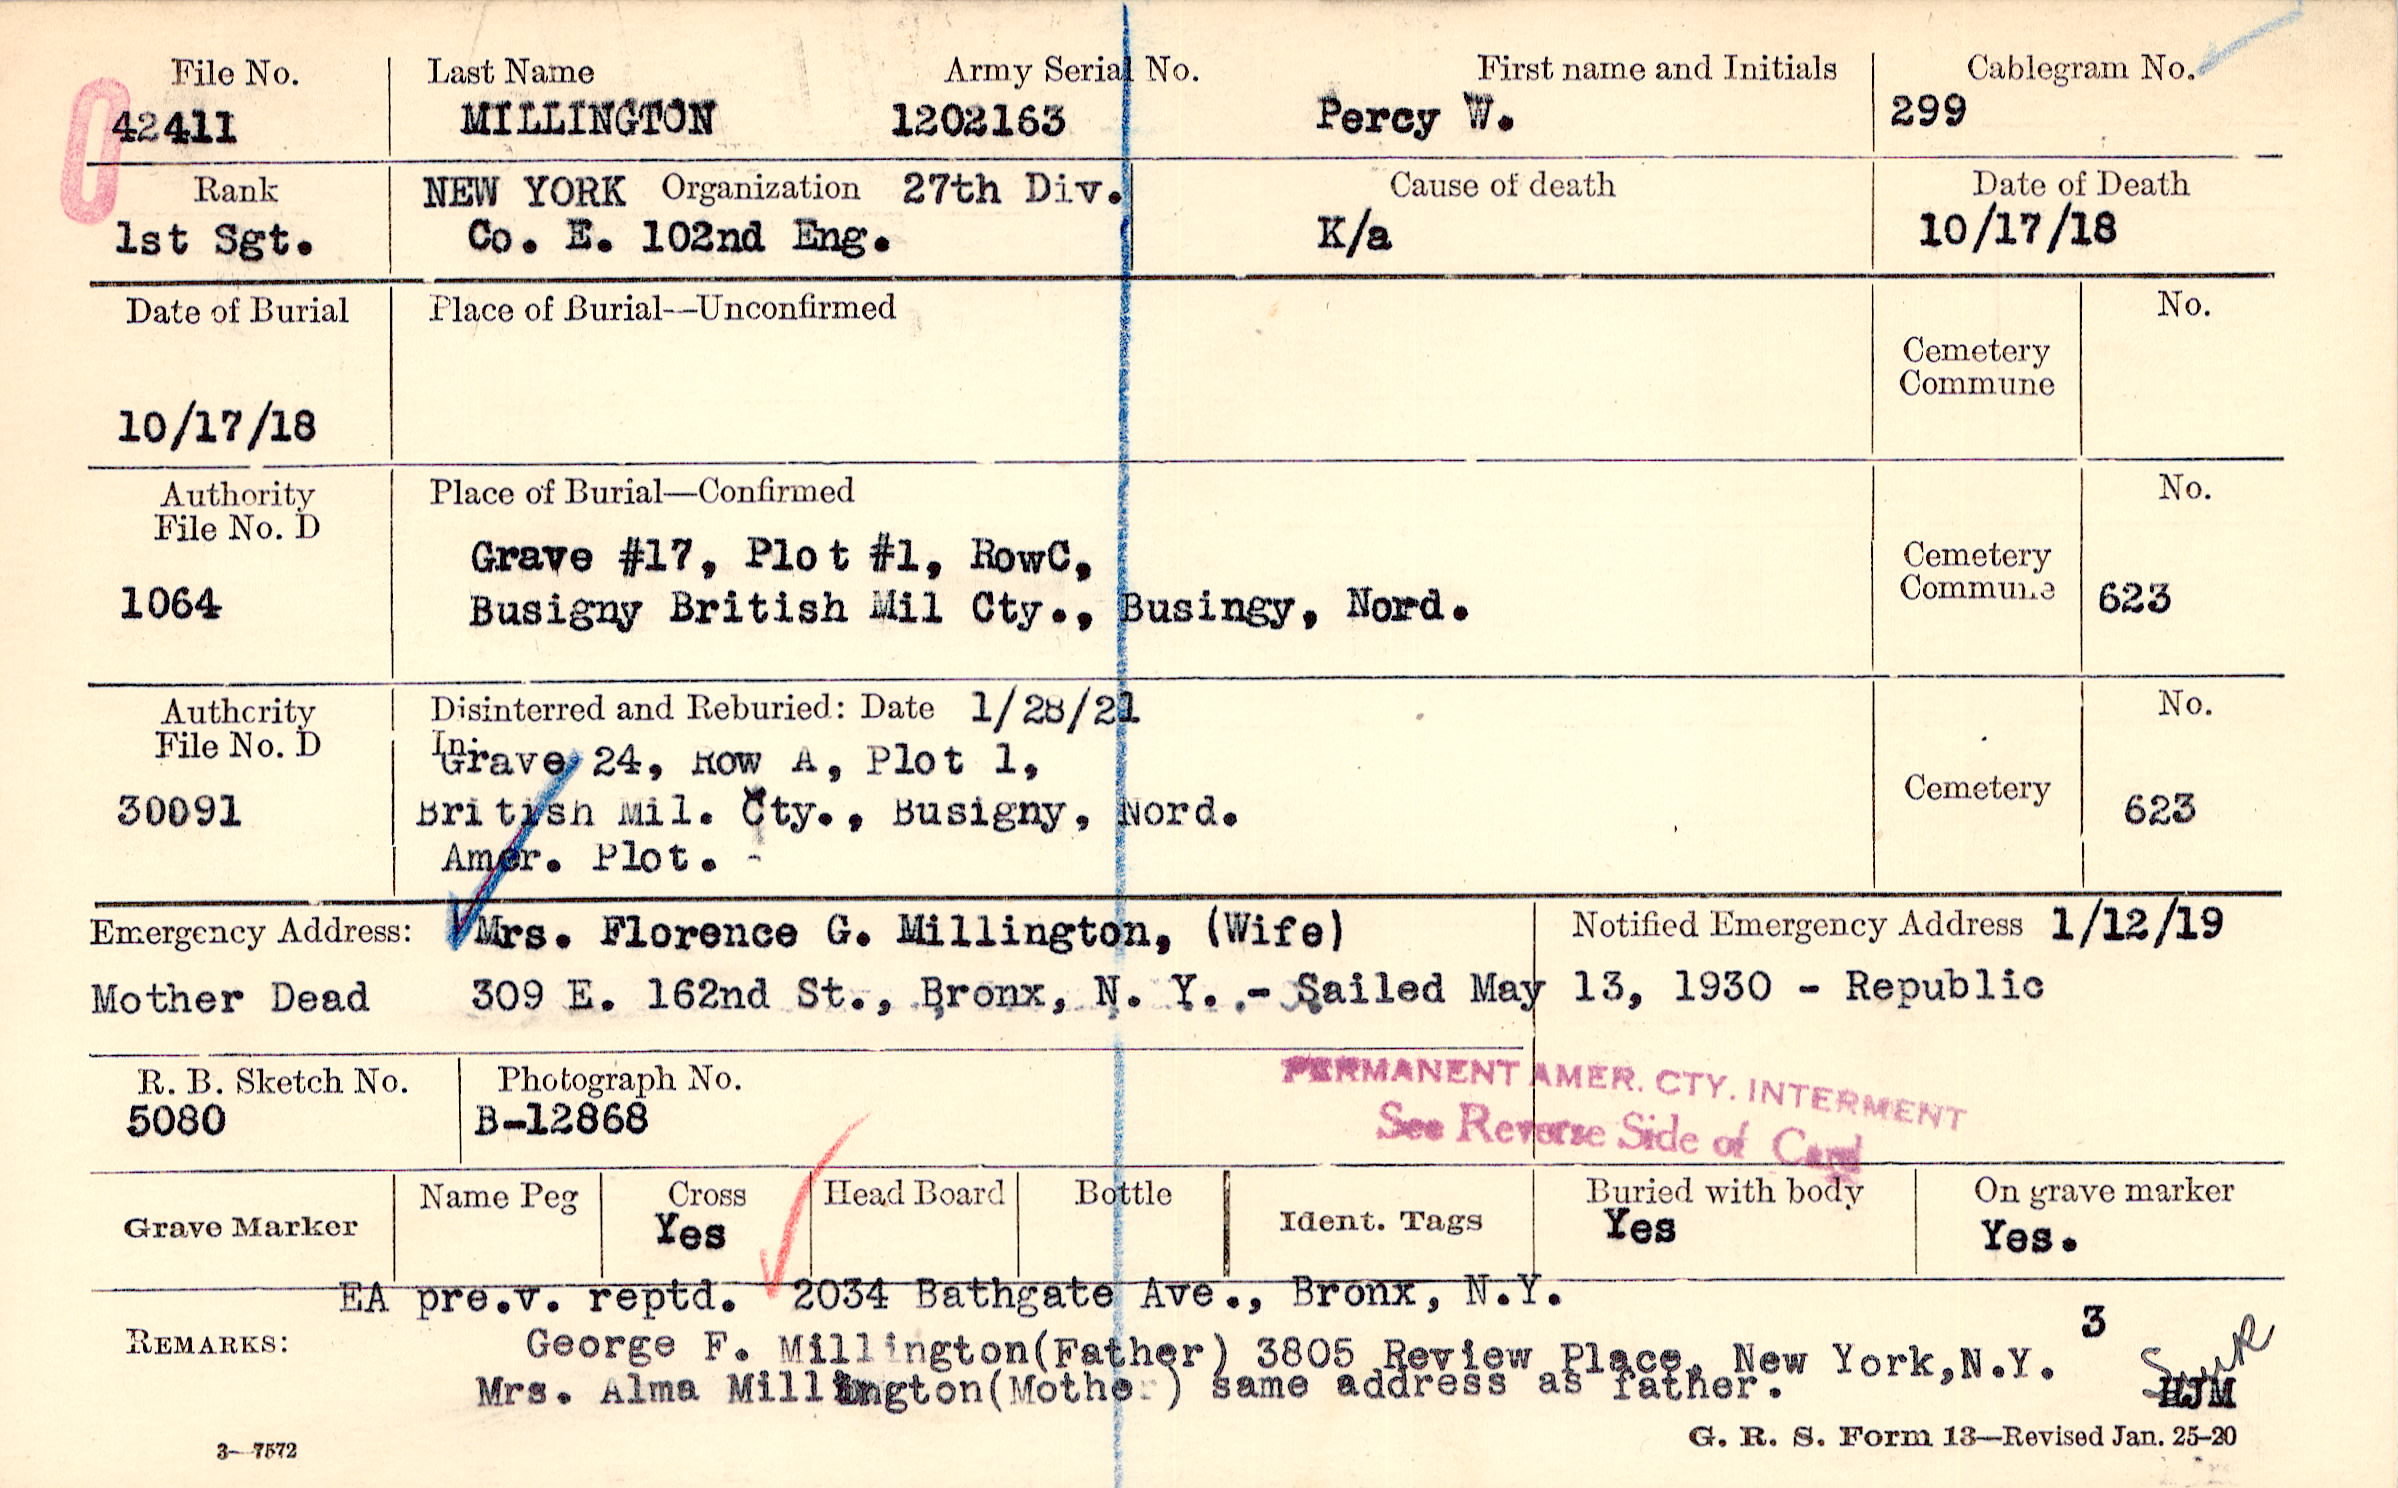 File No. Last Name Army Serial No. First name and Initials Cablegram No.
42411 MILLINGTON 1202163 Percy W. 299
Rank NEW YORK Organization 27th Div. Cause of death Date of Death
1st Sgt. Co. E. 102nd Eng. K/a 10/17/18
Date of Burial Place of Burial—Unconfirmed No.
Cemetery
Commune
10/17/18
Authority Place of Burial—Confirmed No.
File No. D
Grave #17, Plot #1, RowC, Cemetery
1064 Busigny British Mil Cty., Busingy, Nord. Commune 623
Authority Disinterred and Reburied: Date 1/28/21 No.
File No. D In:
Grave 24, Row A, Plot 1,
30091 British Mil. Cty., Busigny, Nord. Cemetery 623
Amer. Plot. -
Emergency Address: Mrs. Florence G. Millington, (Wife) Notified Emergency Address 1/12/19
Mother Dead 309 E. 162nd St., Bronx, N. Y. - Sailed May 13, 1930 - Republic
R. B. Sketch No. Photograph No. PERMANENT AMER. CTY. INTERMENT
5080 B-12868 See Reverse Side of Card
Grave Marker Name Peg Cross Head Board Bottle Ident. Tags Buried with body On grave marker
Yes Yes Yes.
EA pre.v. reptd. 2034 Bathgate Ave., Bronx, N.Y.
3
REMARKS: George F. Millington(Father) 3805 Review Place, New York,N.Y.
Mrs. Alma Millington(Mother) same address as father. HJM
3—7572 G. R. S. Form 13—Revised Jan. 25-20